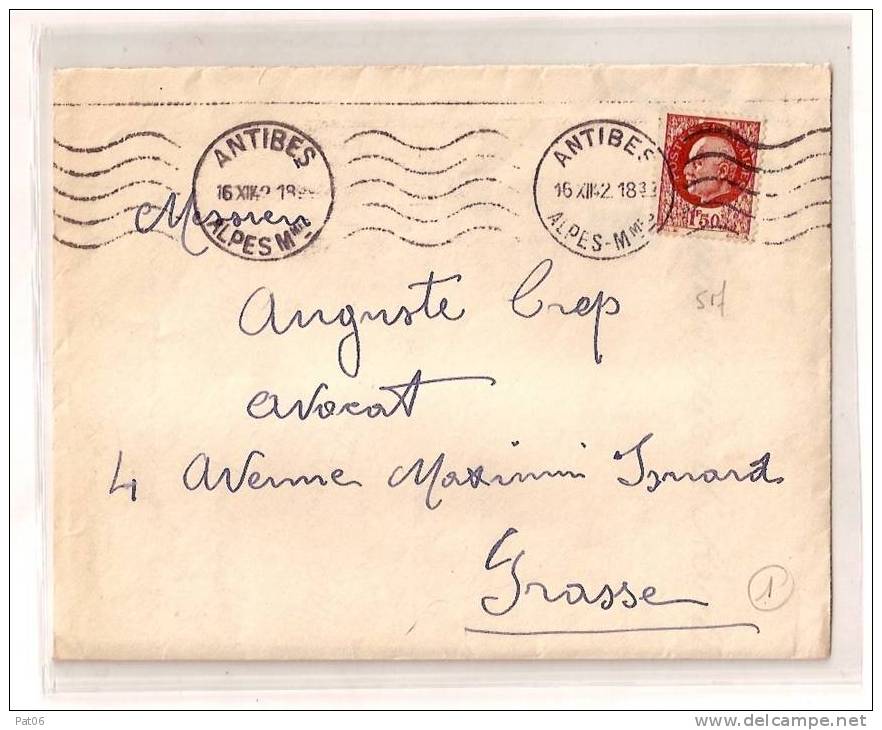 ANTIBES
16 XII 42 18
ALPES Mmes
ANTIBES
16 XII 42 18
ALPES-Mmes
1F50
Monsieur
Auguste Crep
avocat
4 Avenue Maximin Isnard
Grasse
1
Pat06
www.delcampe.net